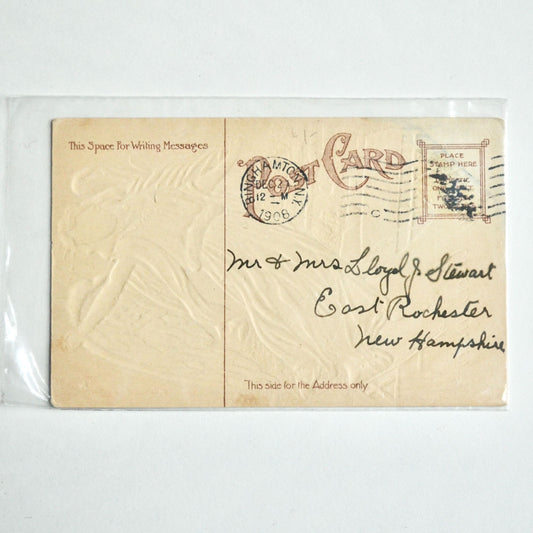 This Space For Writing Messages
POST CARD
BINGHAMTON, N.Y.
DEC
12 - M
1908
C
PLACE
STAMP HERE
DOMESTIC
ONE CENT
TWO CENTS
Mr & Mrs Lloyd J Stewart
East Rochester
New Hampshire
This side for the Address only